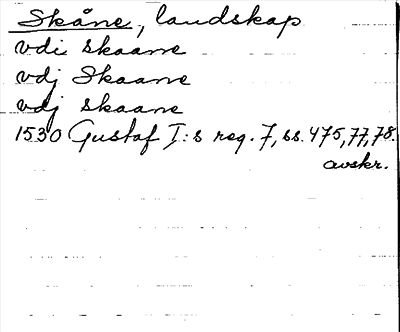 Skåne, landskap
vdi skaane
vdj Skaane
vdj skaane
1530 Gustaf I:s reg. 7, ss. 475, 77, 78.
avskr.